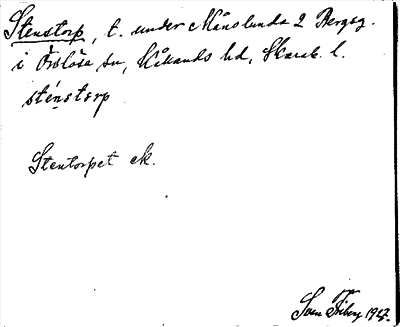 Stenstorp, t. under Månslunda 2 Bergsg.
i Örslösa sn, Kållands hd, Skarab. l.
sténstərp
Stentorpet ek.
Sven Friberg 1927.